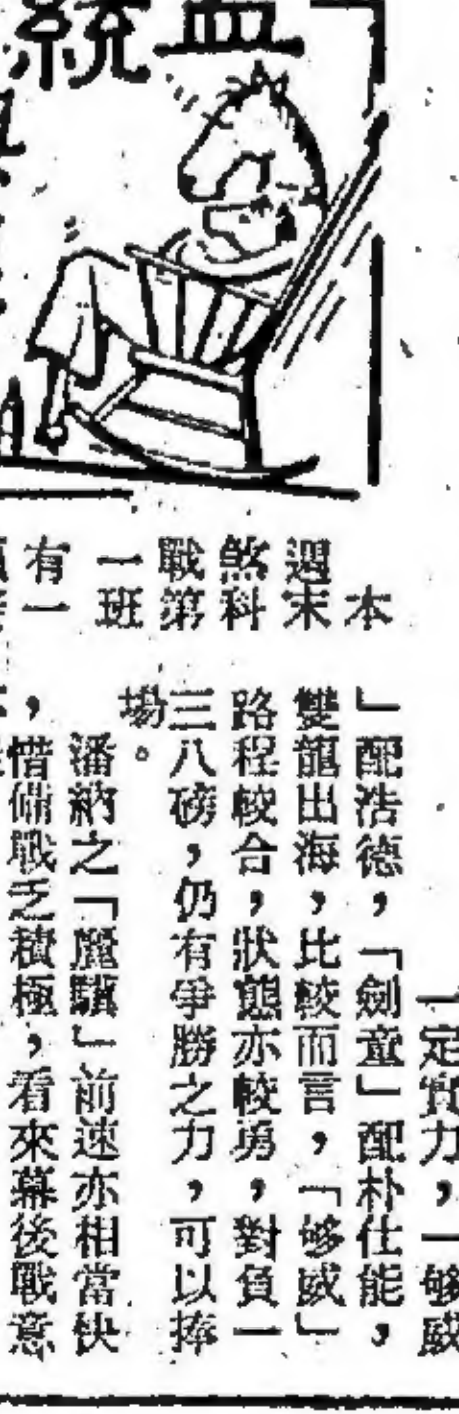 血統
本
週末
煞科
戰第
一班
有一
一定實力，「够威
」配浩德，「劍童」配朴仕能，
雙龍出海，比較而言，「够威」
路程較合，狀態亦較勇，對負一
三八磅，仍有爭勝之力，可以捧
場。
潘納之「麗驥」前速亦相當快
，惜備戰乏積極，看來幕後戰意